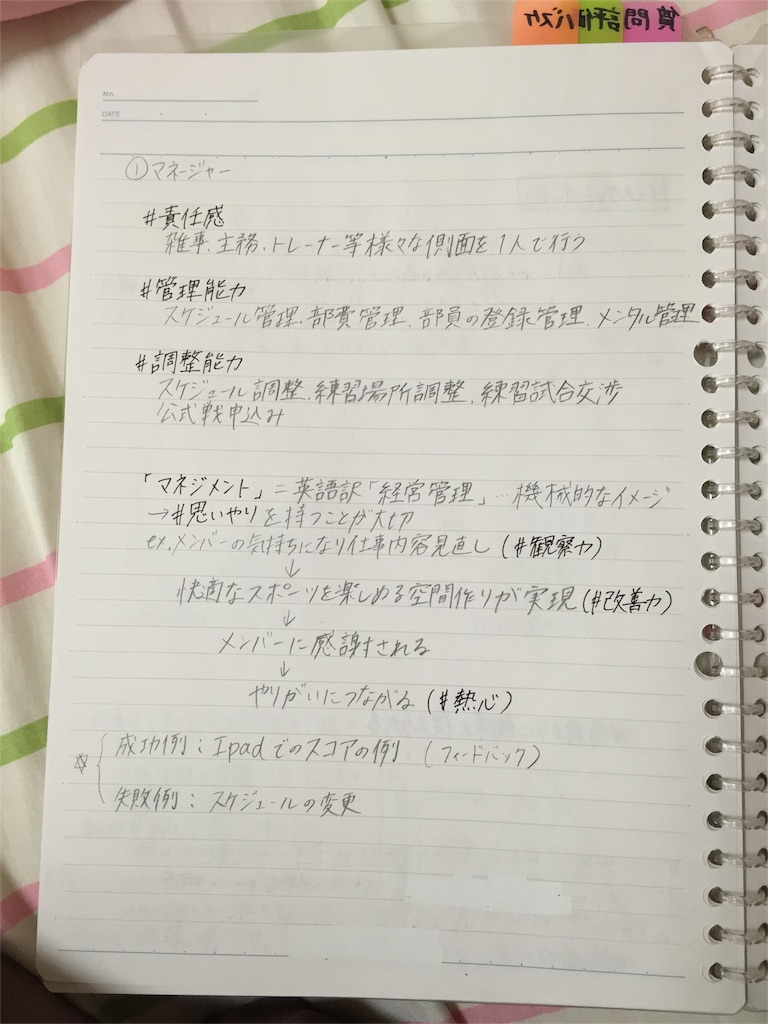 質問評価バスケ
No.
DATE
①マネージャー
#責任感
雑事、主務、トレーナー等様々な側面を1人で行う
#管理能力
スケジュール管理、部費管理、部員の登録管理、メンタル管理
#調整能力
スケジュール調整、練習場所調整、練習試合交渉
公式戦申込み
「マネジメント」=英語訳「経営管理」…機械的なイメージ
→#思いやりを持つことが大切
ex.メンバーの気持ちになり仕事内容見直し(#観察力)
↓
快適なスポーツを楽しめる空間作りが実現(#改善力)
↓
メンバーに感謝される
↓
やりがいにつながる(#熱心)
☆{成功例:Ipadでのスコアの例(フィードバック)
失敗例:スケジュールの変更